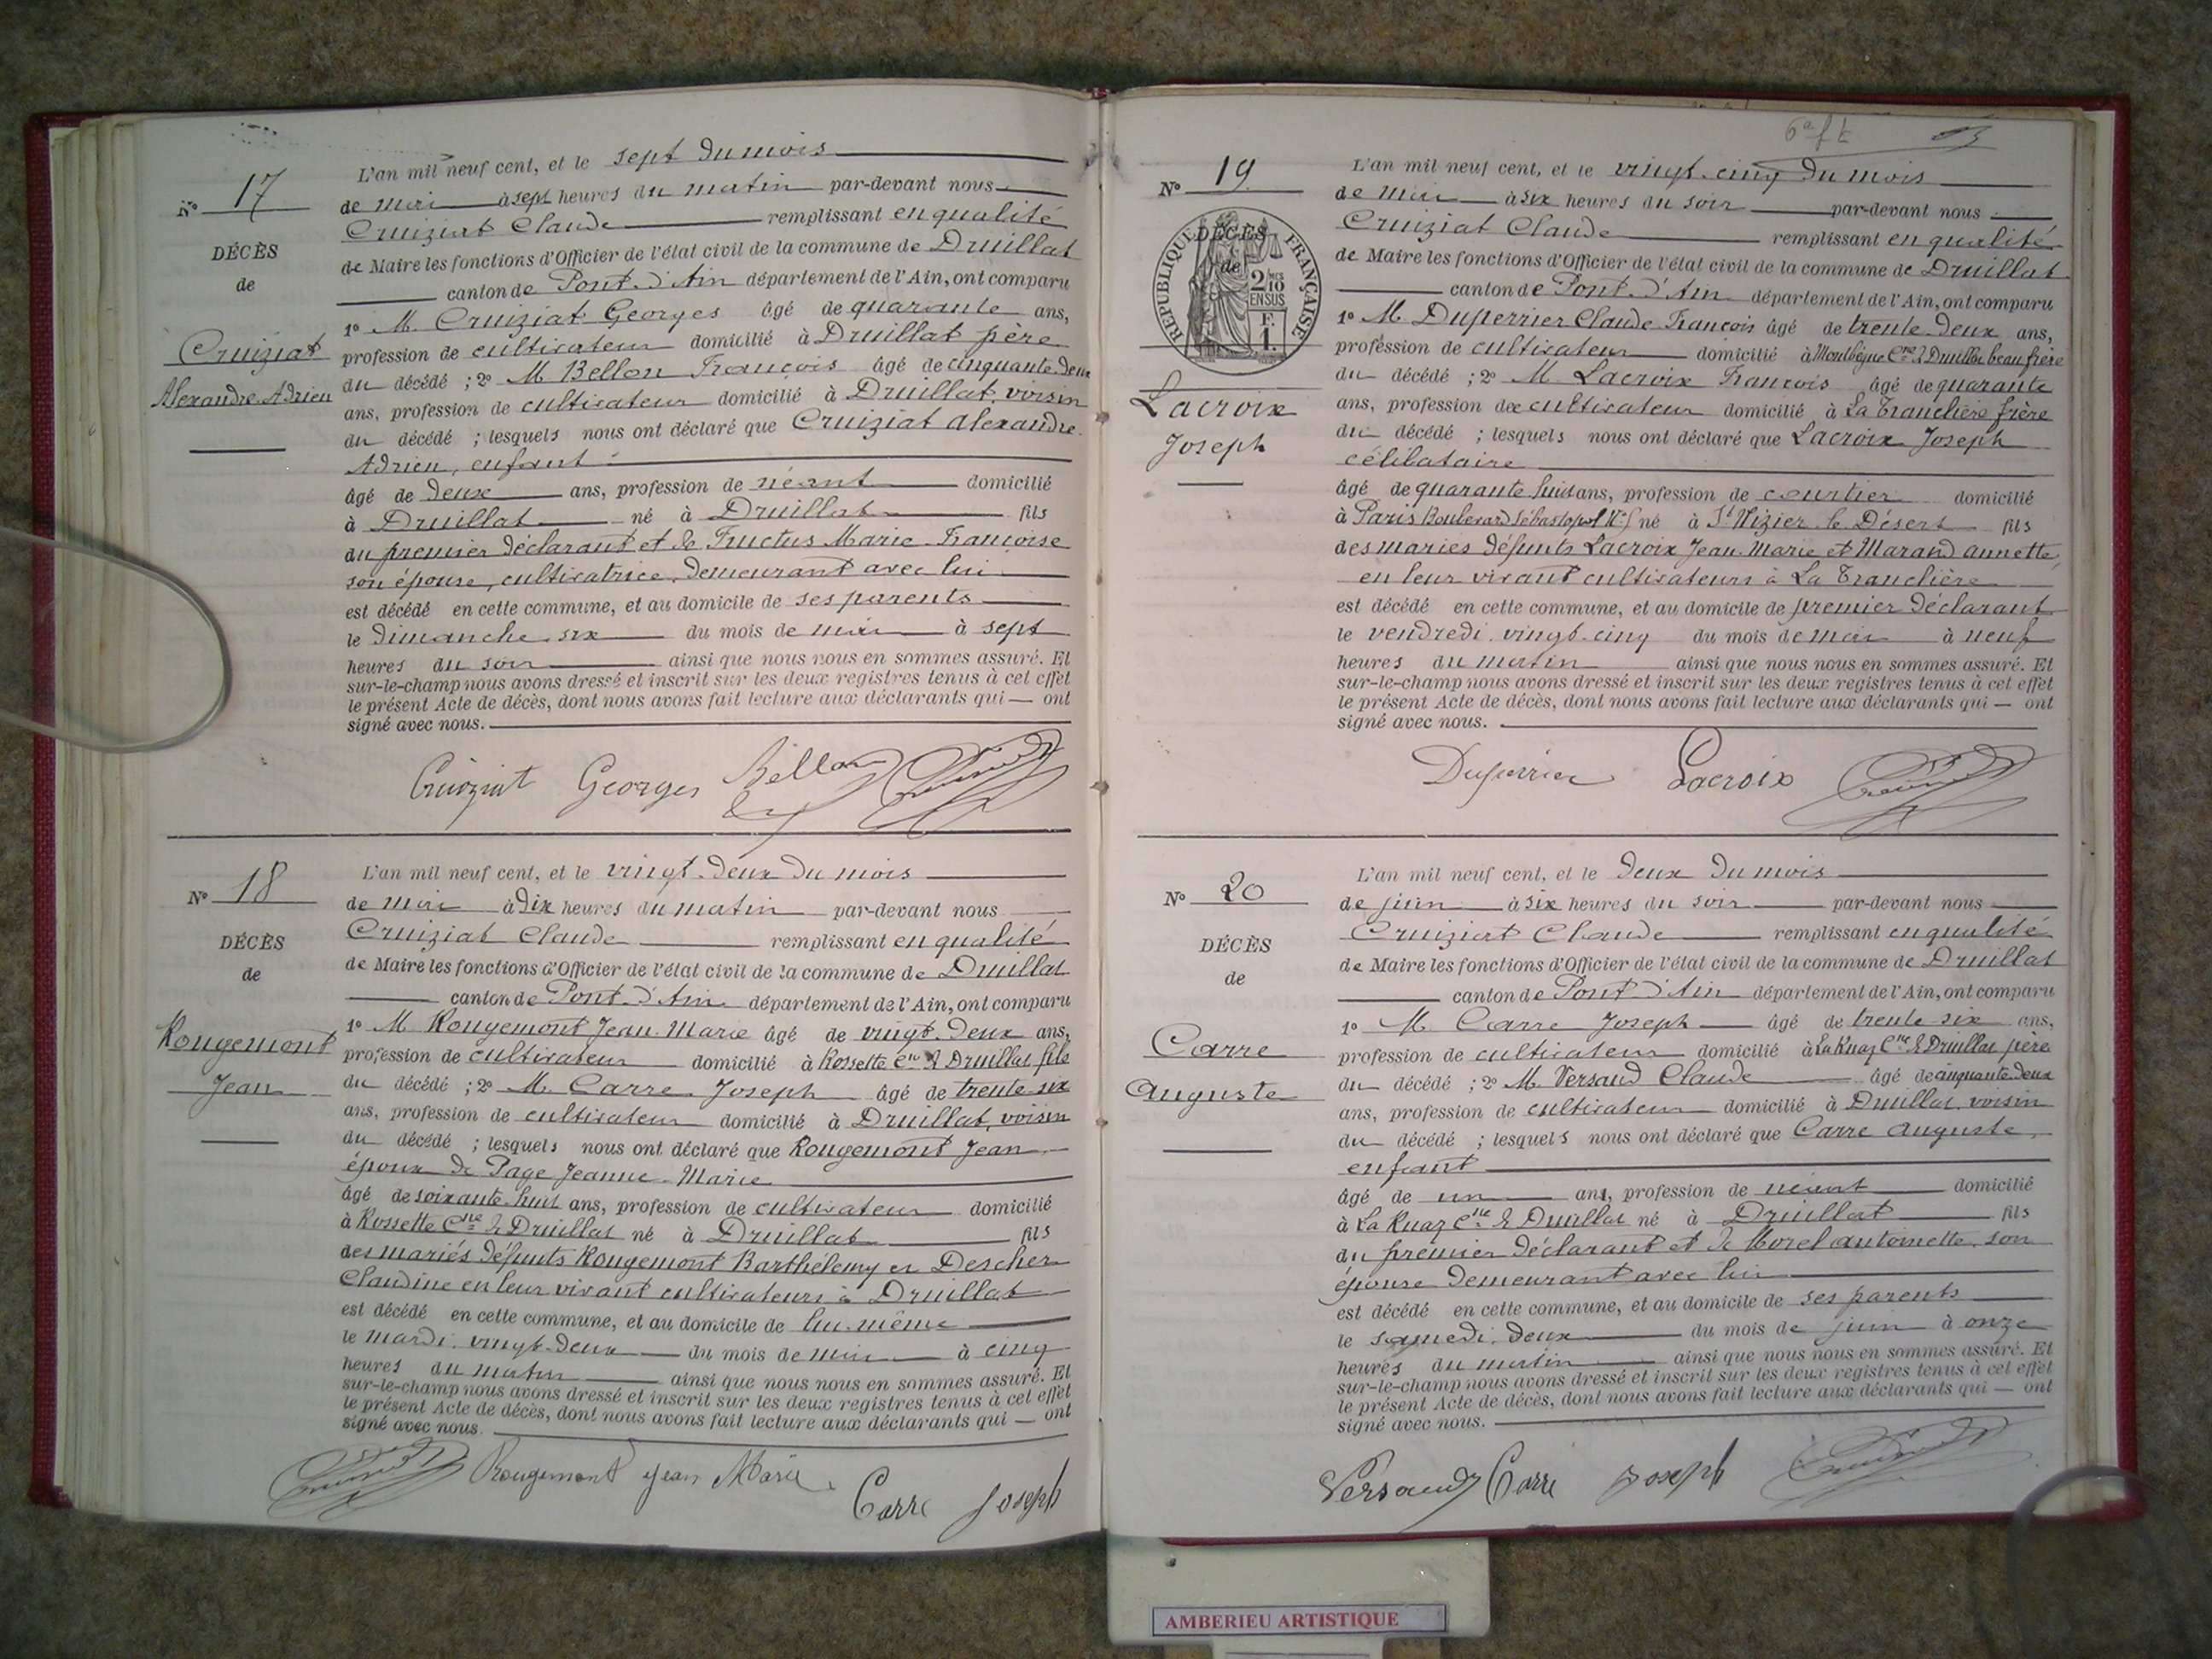 L'an mil neuf cent, et le sept du mois
N° 17
de mai à sept heures du matin par-devant nous
Cruiziat Claude remplissant en qualité
DÉCÈS
de Maire les fonctions d'Officier de l'état civil de la commune de Druillat
de
canton de Pont-d'Ain département de l'Ain, ont comparu
1° M. Cruiziat Georges âgé de quarante ans,
Cruiziat
profession de cultivateur domicilié à Druillat père
Alexandre Adrien
du décédé ; 2° M Bellon François âgé de cinquante-deux
ans, profession de cultivateur domicilié à Druillat, voisin
du décédé ; lesquels nous ont déclaré que Cruiziat Alexandre
Adrien, enfant
âgé de deux ans, profession de néant domicilié
à Druillat né à Druillat fils
du premier déclarant et de Fructus Marie-Françoise
son épouse, cultivatrice, demeurant avec lui
est décédé en cette commune, et au domicile de ses parents
le dimanche six du mois de mai à sept
heures du soir ainsi que nous nous en sommes assuré. Et
sur-le-champ nous avons dressé et inscrit sur les deux registres tenus à cet effet
le présent Acte de décès, dont nous avons fait lecture aux déclarants qui — ont
signé avec nous.
Cruiziat Georges Bellon
L'an mil neuf cent, et le vingt-deux du mois
N° 18
de mai à dix heures du matin par-devant nous
Cruiziat Claude remplissant en qualité
DÉCÈS
de Maire les fonctions d'Officier de l'état civil de la commune de Druillat
de
canton de Pont-d'Ain département de l'Ain, ont comparu
1° M Rougemont Jean-Marie âgé de vingt-deux ans,
Rougemont
profession de cultivateur domicilié à Rossette Cne de Druillat fils
Jean
du décédé ; 2° M. Carre Joseph âgé de trente-six
ans, profession de cultivateur domicilié à Druillat, voisin
du décédé ; lesquels nous ont déclaré que Rougemont Jean
époux de Page Jeanne-Marie
âgé de soixante-huit ans, profession de cultivateur domicilié
à Rossette Cne de Druillat né à Druillat fils
des mariés défunts Rougemont Barthélemy et Descher
Claudine en leur vivant cultivateurs à Druillat
est décédé en cette commune, et au domicile de lui-même
le mardi vingt-deux du mois de mai à cinq
heures du matin ainsi que nous nous en sommes assuré. Et
sur-le-champ nous avons dressé et inscrit sur les deux registres tenus à cet effet
le présent Acte de décès, dont nous avons fait lecture aux déclarants qui — ont
signé avec nous.
Rougemont Jean Marie. Carre Joseph
L'an mil neuf cent, et le vingt-cinq du mois
N° 19
de mai à six heures du soir par-devant nous
Cruiziat Claude remplissant en qualité
RÉPUBLIQUE FRANÇAISE
DÉCÈS
de
2/10 EN SUS
F. 1.
de Maire les fonctions d'Officier de l'état civil de la commune de Druillat
canton de Pont-d'Ain département de l'Ain, ont comparu
1° M Duperrier Claude François âgé de trente-deux ans,
profession de cultivateur domicilié à Montbègue Cne de Druillat beau-frère
Lacroix
du décédé ; 2° M. Lacroix François âgé de quarante
Joseph
ans, profession de cultivateur domicilié à La Tranclière frère
du décédé ; lesquels nous ont déclaré que Lacroix Joseph
célibataire
âgé de quarante huit ans, profession de courtier domicilié
à Paris Boulevard Sébastopol né à St Nizier-le-Désert fils
des mariés défunts Lacroix Jean-Marie et Marand Annette,
en leur vivant cultivateurs à La Tranclière
est décédé en cette commune, et au domicile de premier déclarant
le vendredi vingt-cinq du mois de mai à neuf
heures du matin ainsi que nous nous en sommes assuré. Et
sur-le-champ nous avons dressé et inscrit sur les deux registres tenus à cet effet
le présent Acte de décès, dont nous avons fait lecture aux déclarants qui — ont
signé avec nous.
Duperrier Lacroix
L'an mil neuf cent, et le deux du mois
N° 20
de juin à six heures du soir par-devant nous
Cruiziat Claude remplissant en qualité
DÉCÈS
de Maire les fonctions d'Officier de l'état civil de la commune de Druillat
de
canton de Pont-d'Ain département de l'Ain, ont comparu
1° M. Carre Joseph âgé de trente six ans,
Carre
profession de cultivateur domicilié à La Ruaz Cne de Druillat père
Auguste
du décédé ; 2° M. Versaud Claude âgé de cinquante-deux
ans, profession de cultivateur domicilié à Druillat, voisin
du décédé ; lesquels nous ont déclaré que Carre Auguste,
enfant
âgé de un ans, profession de néant domicilié
à La Ruaz Cne de Druillat né à Druillat fils
du premier déclarant et de Morel Antoinette, son
épouse demeurant avec lui
est décédé en cette commune, et au domicile de ses parents
le samedi deux du mois de juin à onze
heures du matin ainsi que nous nous en sommes assuré. Et
sur-le-champ nous avons dressé et inscrit sur les deux registres tenus à cet effet
le présent Acte de décès, dont nous avons fait lecture aux déclarants qui — ont
signé avec nous.
Versaud Carre Joseph
AMBERIEU ARTISTIQUE